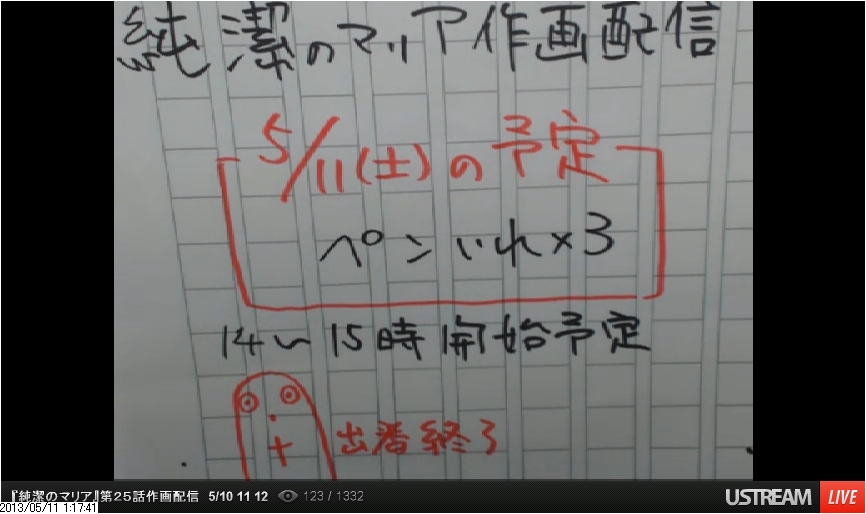 純潔のマリア作画配信
5/11(土)の予定
ペンいれ×3
14〜15時開始予定
出番終了
『純潔のマリア』第25話作画配信 5/10 11 12 123 / 1332 USTREAM LIVE
2013/05/11 1:17:41